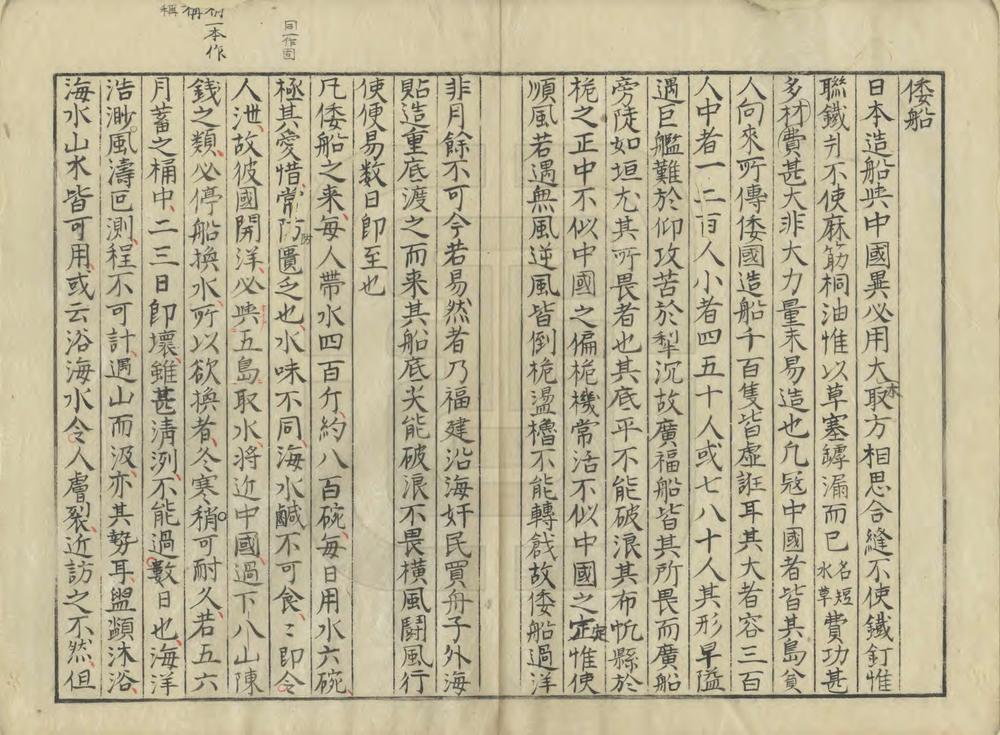 仞一本作
稱 稱
同一作固
倭船
日本造船與中國異必用大木取方相思合縫不使鐵釘惟
聯鐵片不使麻筋桐油惟以草塞罅漏而已名短水草費功甚
多材費甚大非大力量未易造也凡冦中國者皆其島貧
人向來所傳倭國造船千百隻皆虛誑耳其大者容三百
人中者一二百人小者四五十人或七八十人其形卑隘
遇巨艦難於仰攻苦於犁沉故廣福船皆其所畏而廣船
旁陡如垣尤其所畏者也其底平不能破浪其布帆縣於
桅之正中不似中國之偏桅機常活不似中國之定惟使
順風若遇無風逆風皆倒桅盪櫓不能轉戧故倭船過洋
非月餘不可今若易然者乃福建沿海奸民買舟子外海
貼造重底渡之而来其船底尖能破浪不畏橫風鬪風行
使便易数日即至也
凡倭船之来每人帶水四百斤約八百碗每日用水六碗
極其愛惜常防匱乏也水味不同海水鹹不可食〻即令
人泄故彼國開洋必與五島取水將近中國過下八山陳
錢之類必停船換水所以欲換者冬寒稍可耐久若五六
月蓄之桶中二三日即壞雖甚清洌不能過數日也海洋
浩渺風濤叵測程不可計遇山而汲亦其勢耳盥顮沐浴
海水山水皆可用或云浴海水令人膚裂近訪之不然但